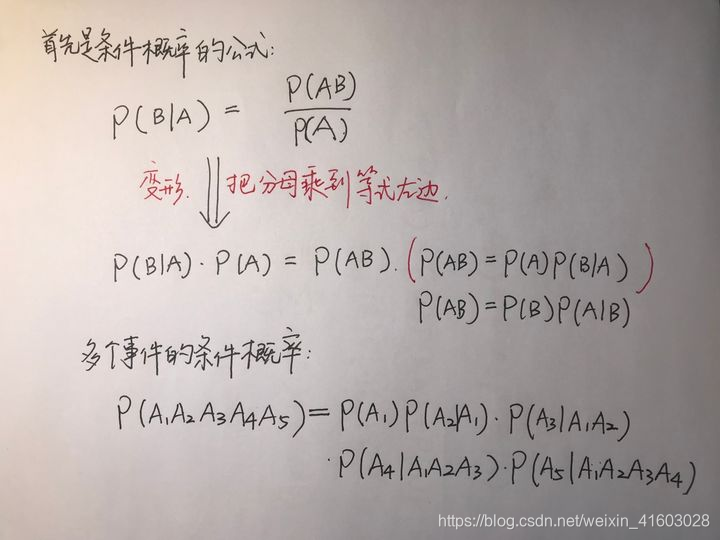 首先是条件概率的公式:
P(B|A) = P(AB) / P(A)
变形. 把分母乘到等式左边.
P(B|A)·P(A) = P(AB). (P(AB) = P(A)P(B|A))
P(AB) = P(B)P(A|B)
多个事件的条件概率:
P(A₁A₂A₃A₄A₅) = P(A₁)P(A₂|A₁)·P(A₃|A₁A₂)
·P(A₄|A₁A₂A₃)·P(A₅|A₁A₂A₃A₄)
https://blog.csdn.net/weixin_41603028